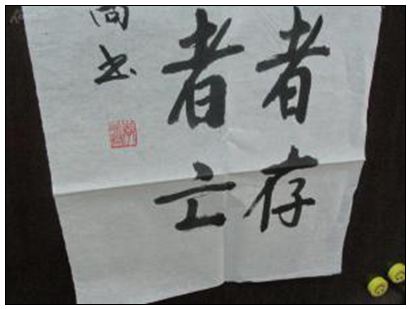 者存
者亡
尚书